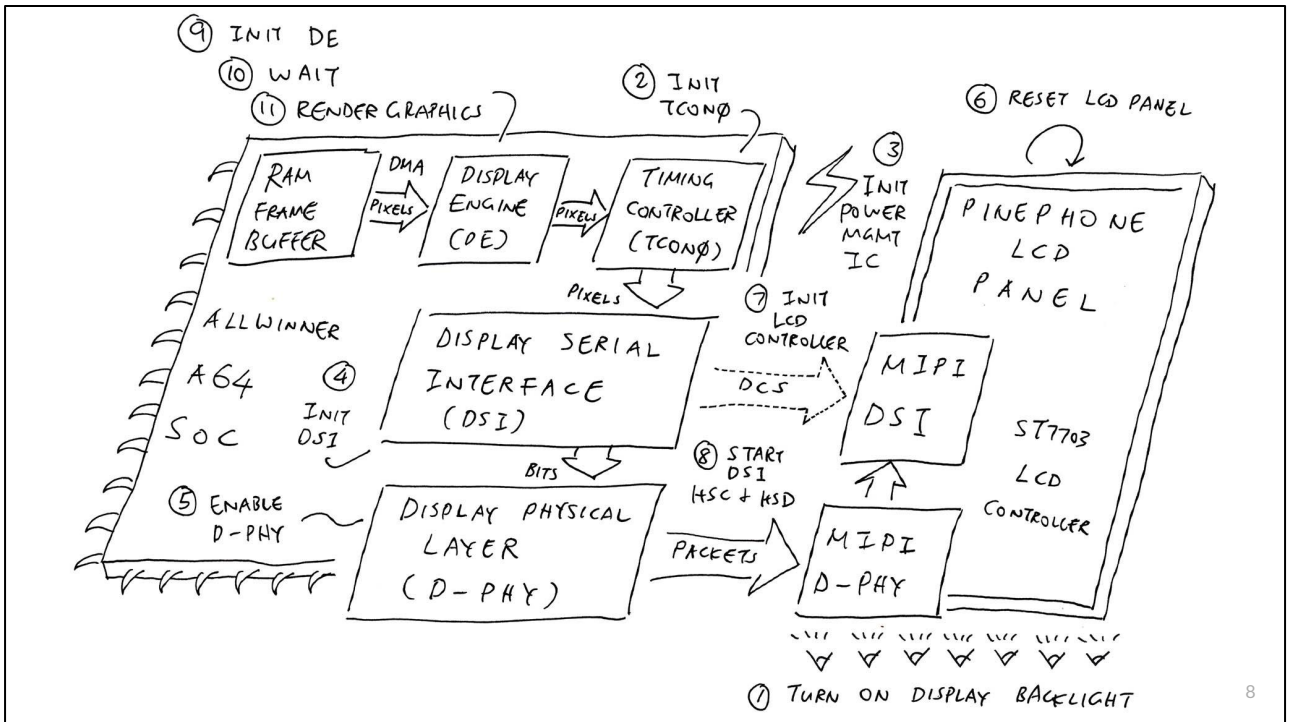 ⑨ INIT DE
⑩ WAIT
⑪ RENDER GRAPHICS
② INIT
TCONØ
⑥ RESET LCD PANEL
RAM
FRAME
BUFFER
DMA
PIXELS
DISPLAY
ENGINE
(DE)
PIXELS
TIMING
CONTROLLER
(TCONØ)
③
INIT
POWER
MGMT
IC
PINEPHONE
LCD
PANEL
PIXELS
ALLWINNER
A64
SOC
④
INIT
DSI
DISPLAY SERIAL
INTERFACE
(DSI)
⑦ INIT
LCD
CONTROLLER
DCS
MIPI
DSI
ST7703
LCD
CONTROLLER
BITS
⑧ START
DSI
HSC + HSD
⑤ ENABLE
D-PHY
DISPLAY PHYSICAL
LAYER
(D-PHY)
PACKETS
MIPI
D-PHY
① TURN ON DISPLAY BACKLIGHT
8